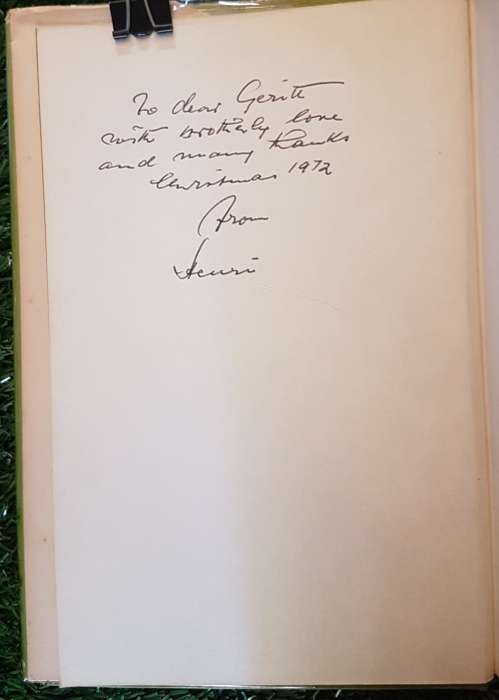 To dear Geritt
with brotherly love
and many thanks
Christmas 1972
From
Henri